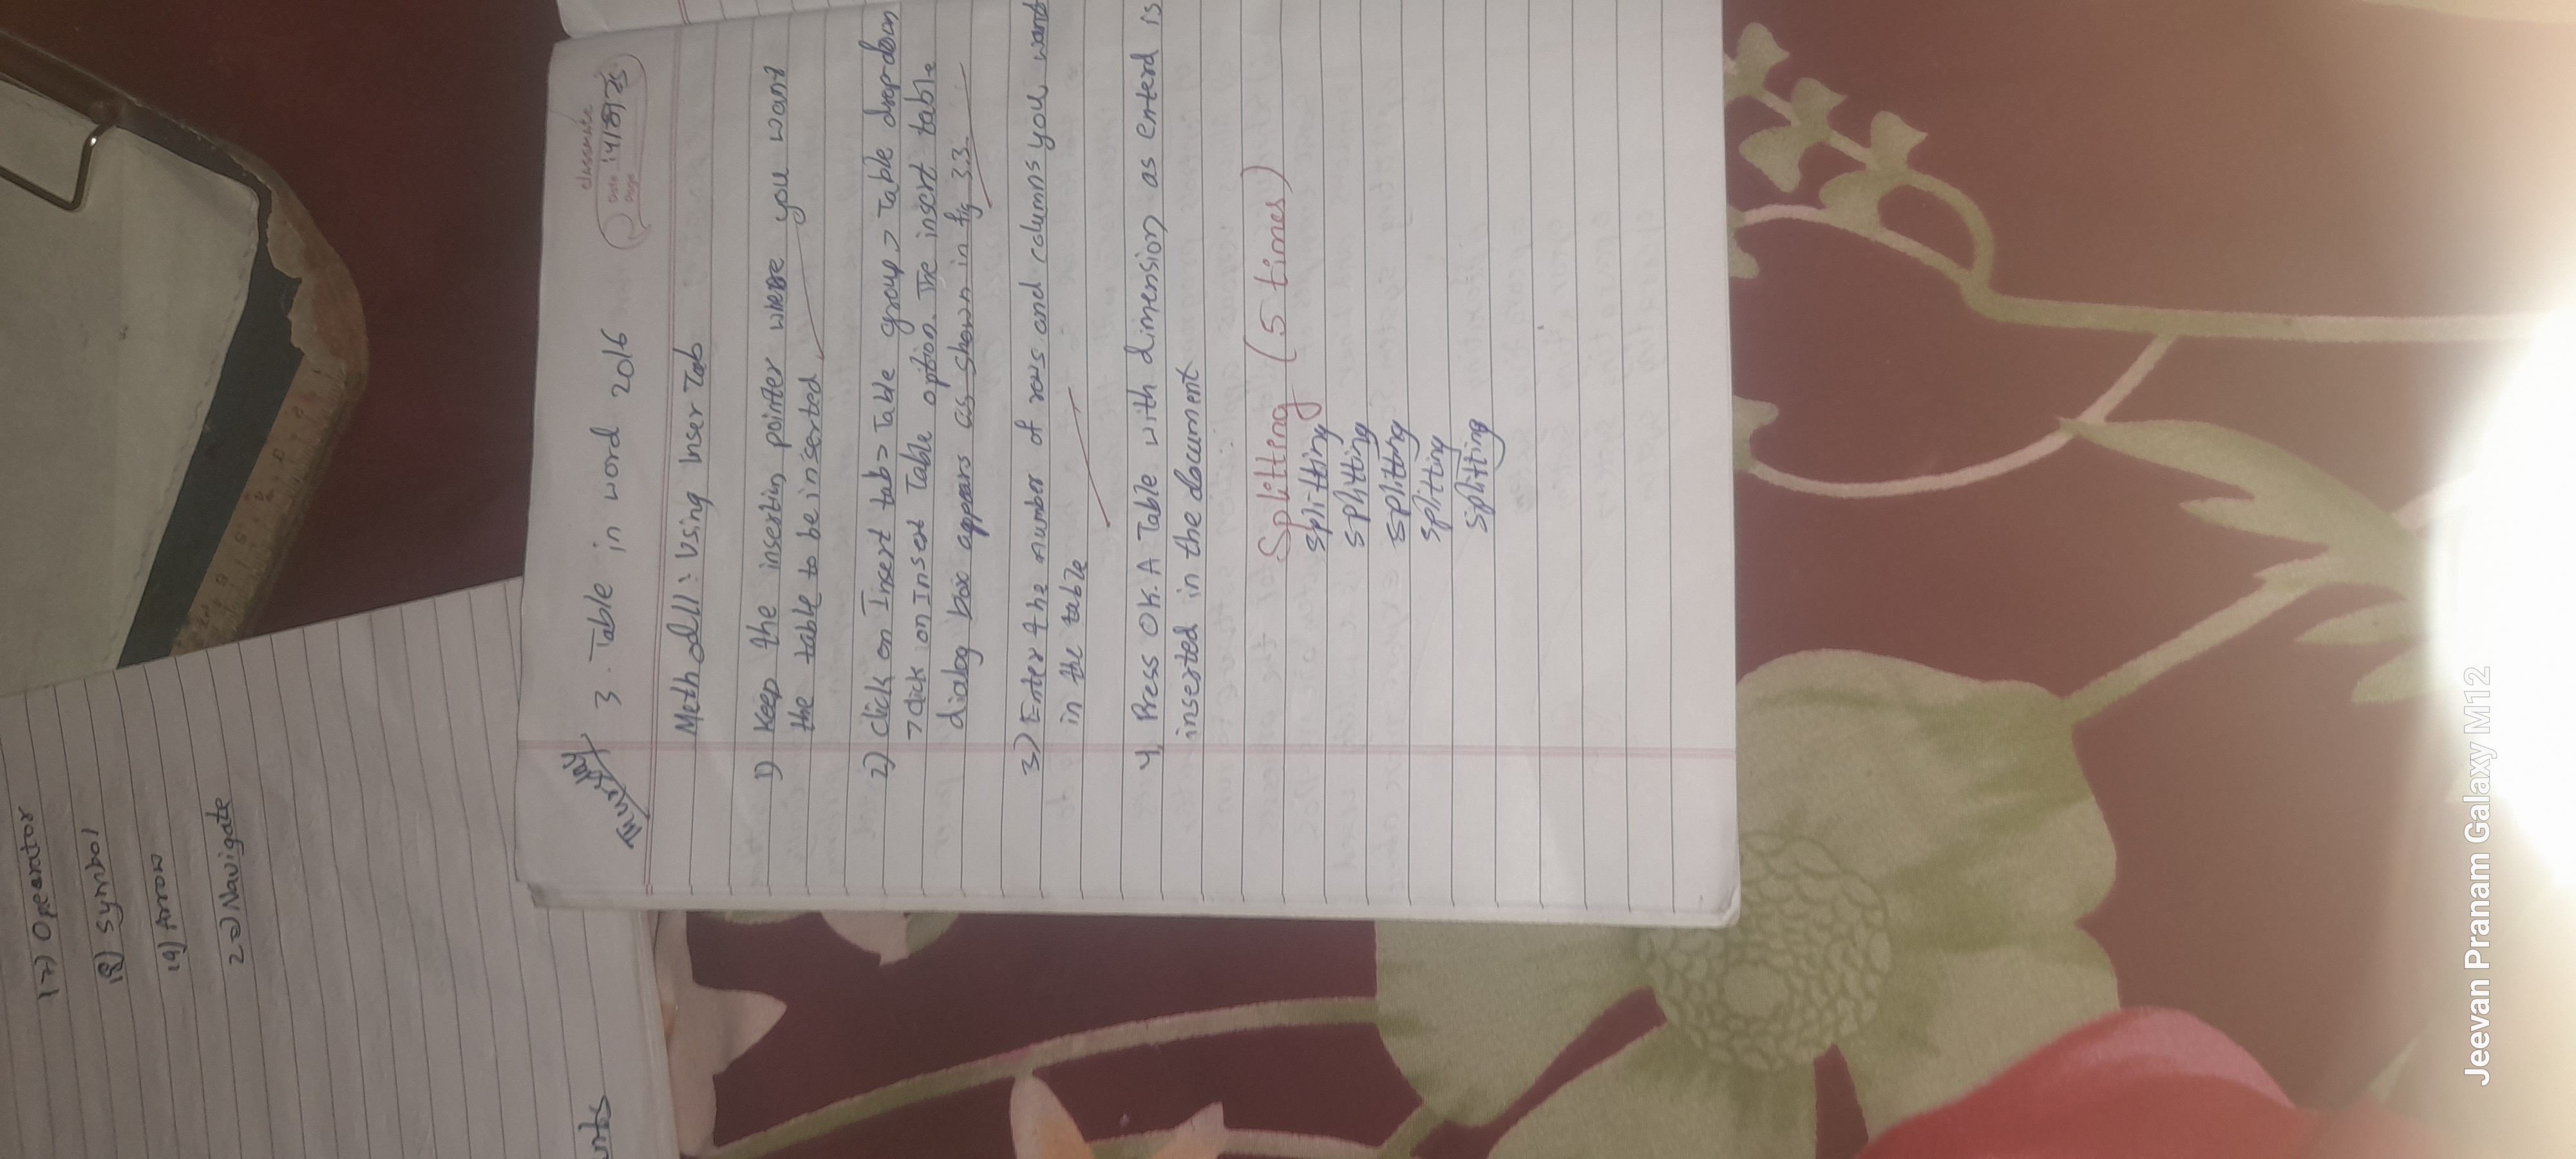 classmate
Date 14/8/25
Page
Thursday
3. Table in word 2016
Method 1: Using Inser Tab
1) Keep the insertin pointer where you want
the table to be inserted
2) Click on Insert tab > Table group > Table drop-down
> click on Inset Table option. The insert table
dialog box appears as shown in fig 3.3.
3) Enter the number of rows and columns you want
in the table
4. Press OK. A Table with dimension as enterd is
inserted in the document
Splitting (5 times)
splitting
splitting
splitting
splitting
splitting
17) Opearator
18) Symbol
19) Arrow
20) Navigate
Jeevan Pranam Galaxy M12